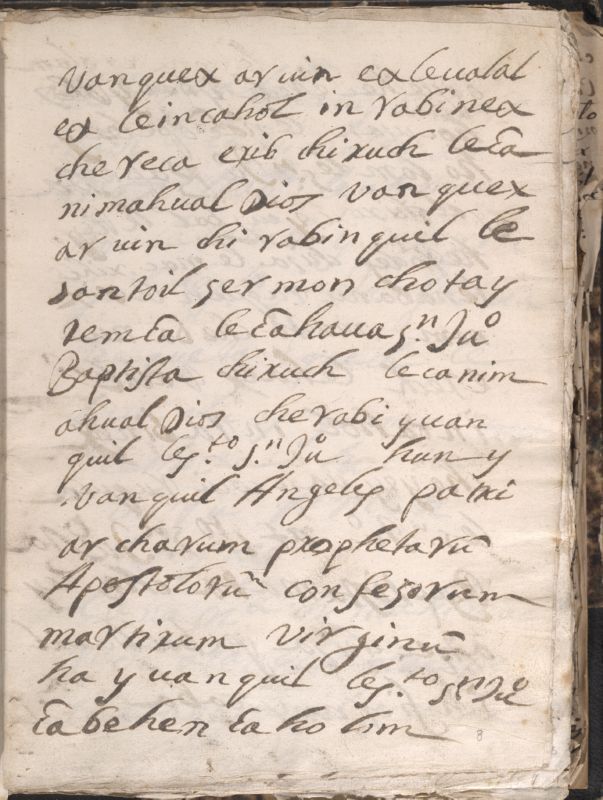 vanquex ar vin ex levalal
ex leincahol in rabinex
che reca exib chixuch lec̄a
nimahual Dios vanquex
ar vin chi rabinquil le
santoil sermon chotay
remc̄a lec̄ahaua s.n Juº
Baptista chixuch lecanim
ahual Dios cherabi yuan
quil les.to s.n Juº hun y
vanquil Angeles patri
archarum prophetarū
Apostolorū confesorum
martirum virginū
ha yuanquil les.to sn Juº
c̄abehen c̄aholim
8